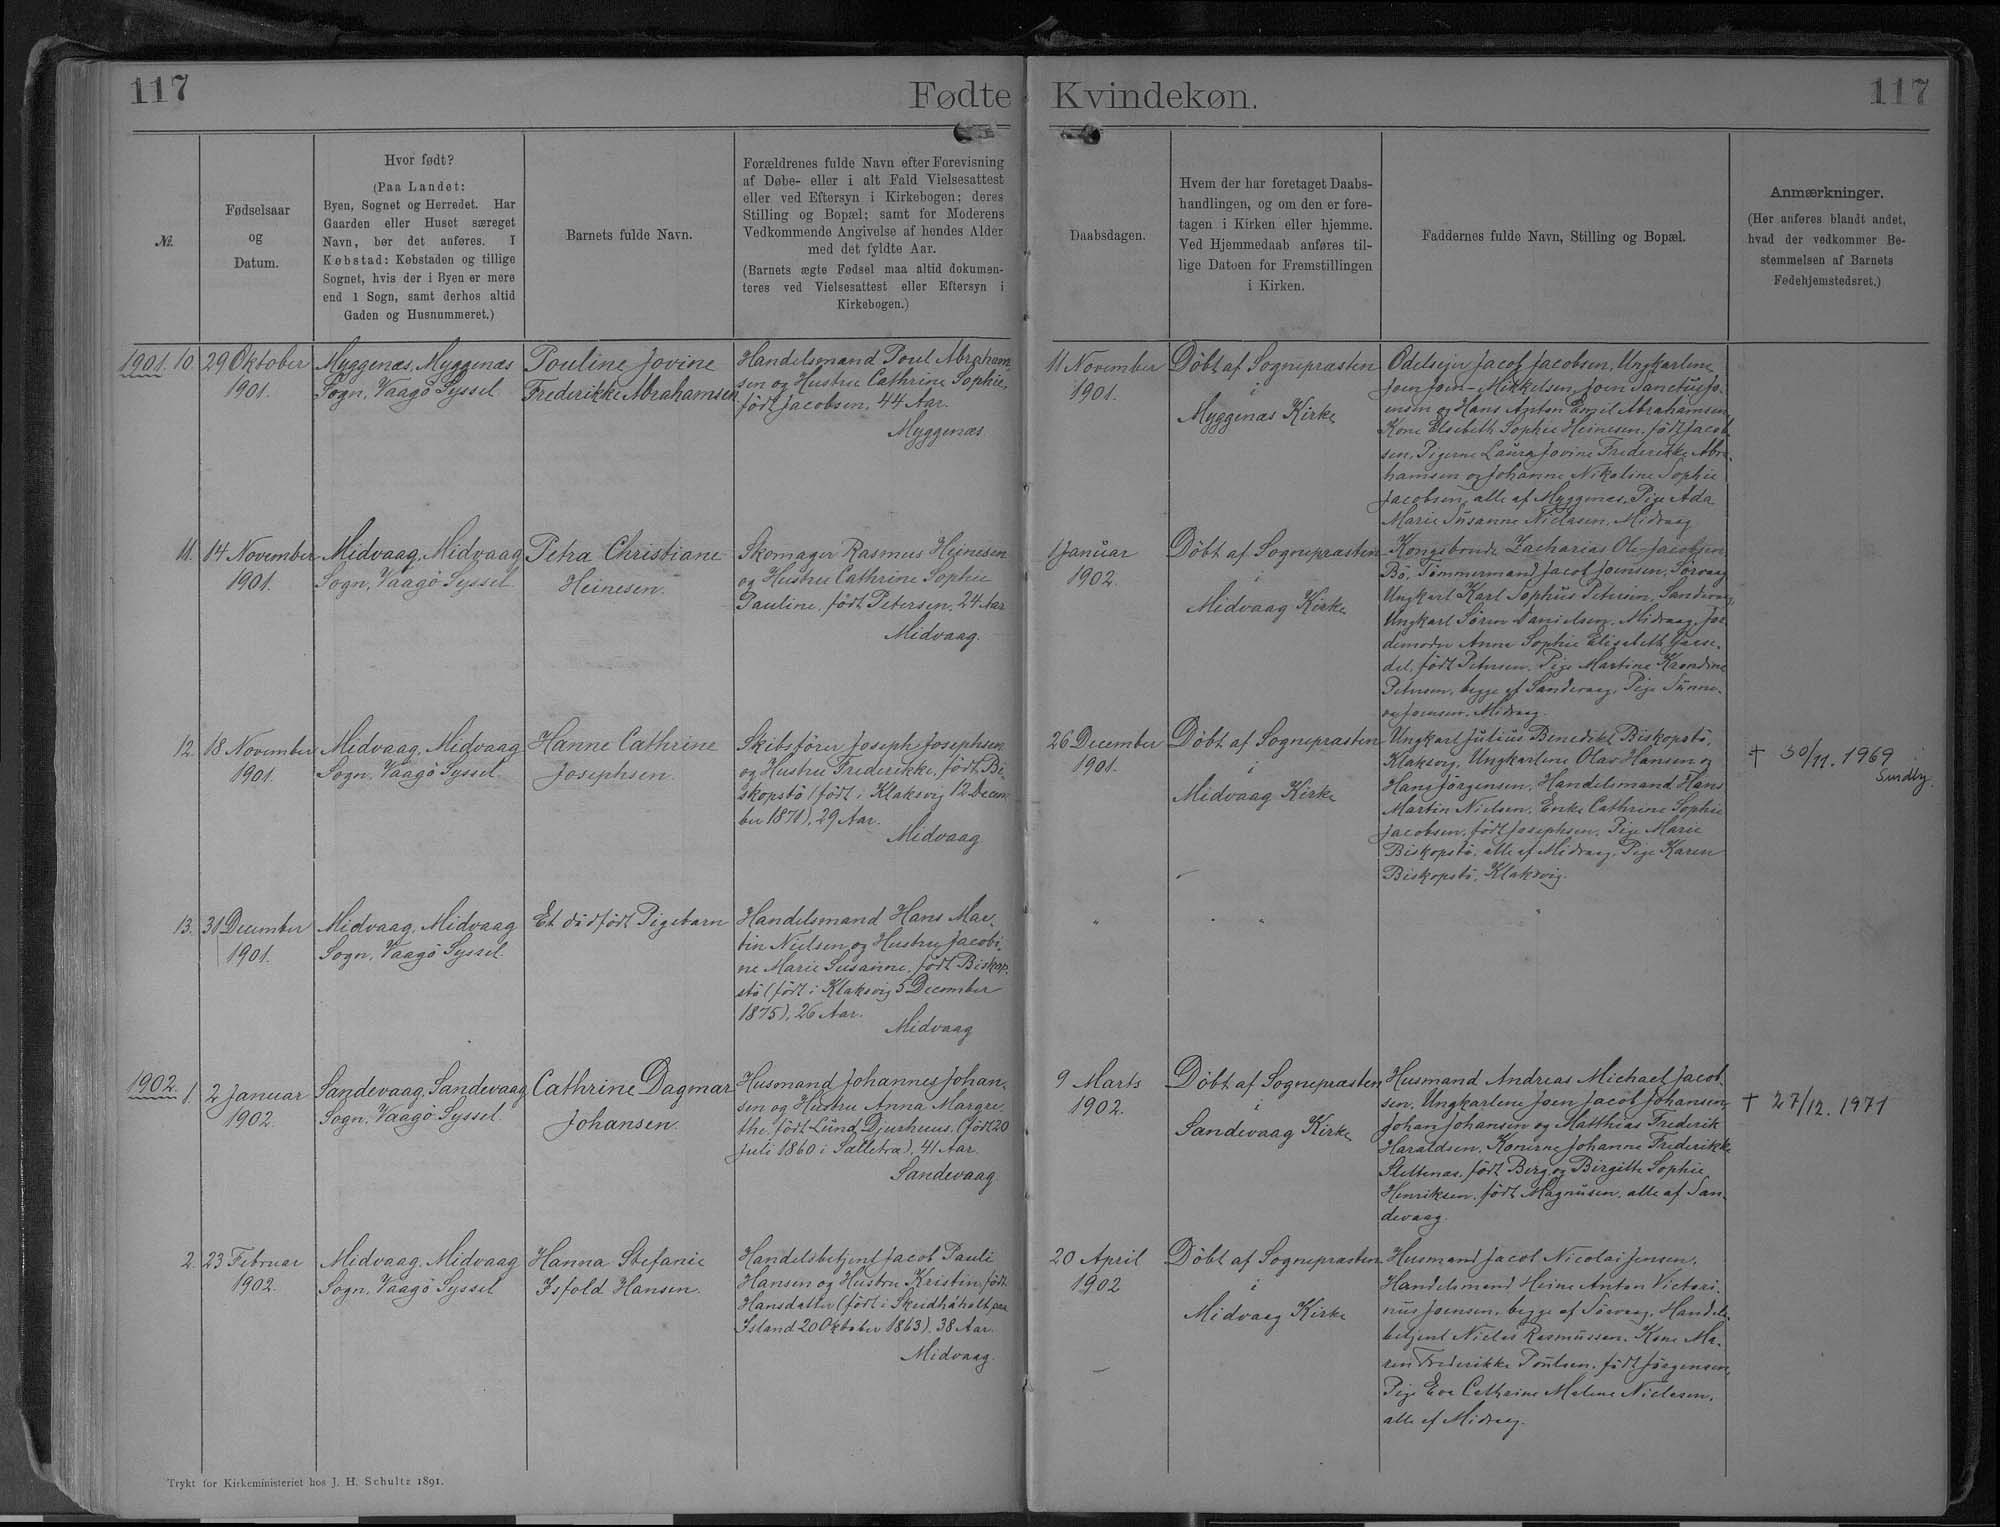 117
Fødte
Kvindekøn.
117
№.
Fødselsaar
og
Datum.
Hvor født?
(Paa Landet:
Byen, Sognet og Herredet. Har
Gaarden eller Huset særeget
Navn, bør det anføres. I
Købstad: Købstaden og tillige
Sognet, hvis der i Byen er mere
end 1 Sogn, samt derhos altid
Gaden og Husnummeret.)
Barnets fulde Navn.
Forældrenes fulde Navn efter Forevisning
af Døbe- eller i alt Fald Vielsesattest
eller ved Eftersyn i Kirkebogen; deres
Stilling og Bopæl; samt for Moderens
Vedkommende Angivelse af hendes Alder
med det fyldte Aar.
(Barnets ægte Fødsel maa altid dokumen-
teres ved Vielsesattest eller Eftersyn i
Kirkebogen.)
Daabsdagen.
Hvem der har foretaget Daabs-
handlingen, og om den er fore-
tagen i Kirken eller hjemme.
Ved Hjemmedaab anføres til-
lige Datoen for Fremstillingen
i Kirken.
Faddernes fulde Navn, Stilling og Bopæl.
Anmærkninger.
(Her anføres blandt andet,
hvad der vedkommer Be-
stemmelsen af Barnets
Fødehjemstedsret.)
1901. 10.
29 Oktober
1901.
Myggenæs, Myggenæs
Sogn, Vaagö Syssel
Pouline Jovine
Frederikke Abrahamsen
Handelsmand Poul Abraham-
sen og Hustru Cathrine Sophie,
född Jacobsen, 44 Aar.
Myggenæs
11 November
1901.
Döbt af Sognepræsten
i
Myggenæs Kirke
Odelsejer Jacob Jacobsen, Ungkarlene
Joen Joen-Mikkelsen, Joen Sanctus Jo-
ensen og Hans Anton Emil Abrahamsen,
Kone Elsebeth Sophie Heinesen, född Jacob-
sen, Pigerne Laura Jovine Frederikke Abra-
hamsen og Johanne Nikoline Sophie
Jacobsen, alle af Myggenæs, Pige Ada
Marie Susanne Nielsen, Midvaag
11.
14 November
1901.
Midvaag, Midvaag
Sogn, Vaagö Syssel
Petra Christiane
Heinesen.
Skomager Rasmus Heinesen
og Hustru Cathrine Sophie
Pauline, född Petersen, 24 Aar
Midvaag.
1 Januar
1902.
Döbt af Sognepræsten
i
Midvaag Kirke
Kongsbonde Zacharias Ole Jacobsen
Bö, Tömmermand Jacob Joensen, Sörvaag
Ungkarl Karl Sophus Petersen, Sandevaag,
Ungkarl Sören Danielsen, Midvaag, Jor-
demoder Anne Sophie Elisabeth
del, född Petersen, Pige Martine
Petersen, begge af Sandevaag, Pige Sunne-
va Joensen, Midvaag.
12.
18 November
1901.
Midvaag, Midvaag
Sogn, Vaagö Syssel
Hanne Cathrine
Josephsen.
Skibsförer Joseph Josephsen
og Hustru Frederikke, född Bi-
skopstö (född i Klaksvig 12 Decem-
ber 1871), 29 Aar.
Midvaag
26 December
1901.
Döbt af Sognepræsten
i
Midvaag Kirke
Ungkarl Julius Benedikt Biskopstö,
Klaksvig, Ungkarlene Olav Hansen og
Hans Jörgensen, Handelsmand Hans
Martin Nielsen, Enke Cathrine Sophie
Jacobsen, född Josephsen, Pige Marie
Biskopstö, alle af Midvaag, Pige Karen
Biskopstö, Klaksvig.
† 30/11. 1969
Sundby.
13.
31 December
1901.
Midvaag, Midvaag
Sogn, Vaagö Syssel.
Et dödfödt Pigebarn
Handelsmand Hans Mar-
tin Nielsen og Hustru Jacobi-
ne Marie Susanne, född Biskop-
stö (född i Klaksvig 5 December
1875), 26 Aar.
Midvaag
1902. 1.
2 Januar
1902.
Sandevaag, Sandevaag
Sogn, Vaagö Syssel.
Cathrine Dagmar
Johansen.
Husmand Johannes Johan-
sen og Hustru Anna Margre-
the, född Lund Djurhuus, (född 20
Juli 1860 i Sælletræ), 41 Aar.
Sandevaag
9 Marts
1902.
Döbt af Sognepræsten
i
Sandevaag Kirke
Husmand Andreas Michael Jacob-
sen, Ungkarlene Joen Jacob Johansen,
Johan Johansen og Matthias Frederik
Haraldsen, Konerne Johanne Frederikke
Slettenæs, född Berg og Birgitte Sophie
Henriksen, född Magnusen, alle af San-
devaag.
† 27/12. 1971
2.
23 Februar
1902.
Midvaag, Midvaag
Sogn, Vaagö Syssel
Hanna Stefanie
Isfold Hansen.
Handelsbetjent Jacob Pauli
Hansen og Hustru Kristin, född
Hansdatter (född i Skeidháholt paa
Island 20 Oktober 1863), 38 Aar.
Midvaag.
20 April
1902
Döbt af Sognepræsten
i
Midvaag Kirke
Husmand Jacob Nicolai Jensen,
Handelsmand Heine Anton Victori-
nus Joensen, begge af Sörvaag, Handels-
betjent Niclas Rasmussen, Kone Ma-
ren Frederikke Poulsen, född Jörgensen,
Pige Eva Cathrine Malene Nielsen,
alle af Midvaag.
Trykt for Kirkeministeriet hos J. H. Schultz 1891.